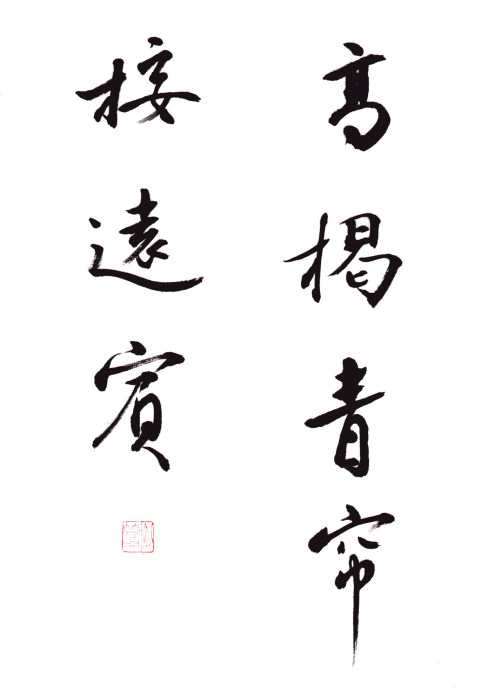 高揭青帘
接遠賓